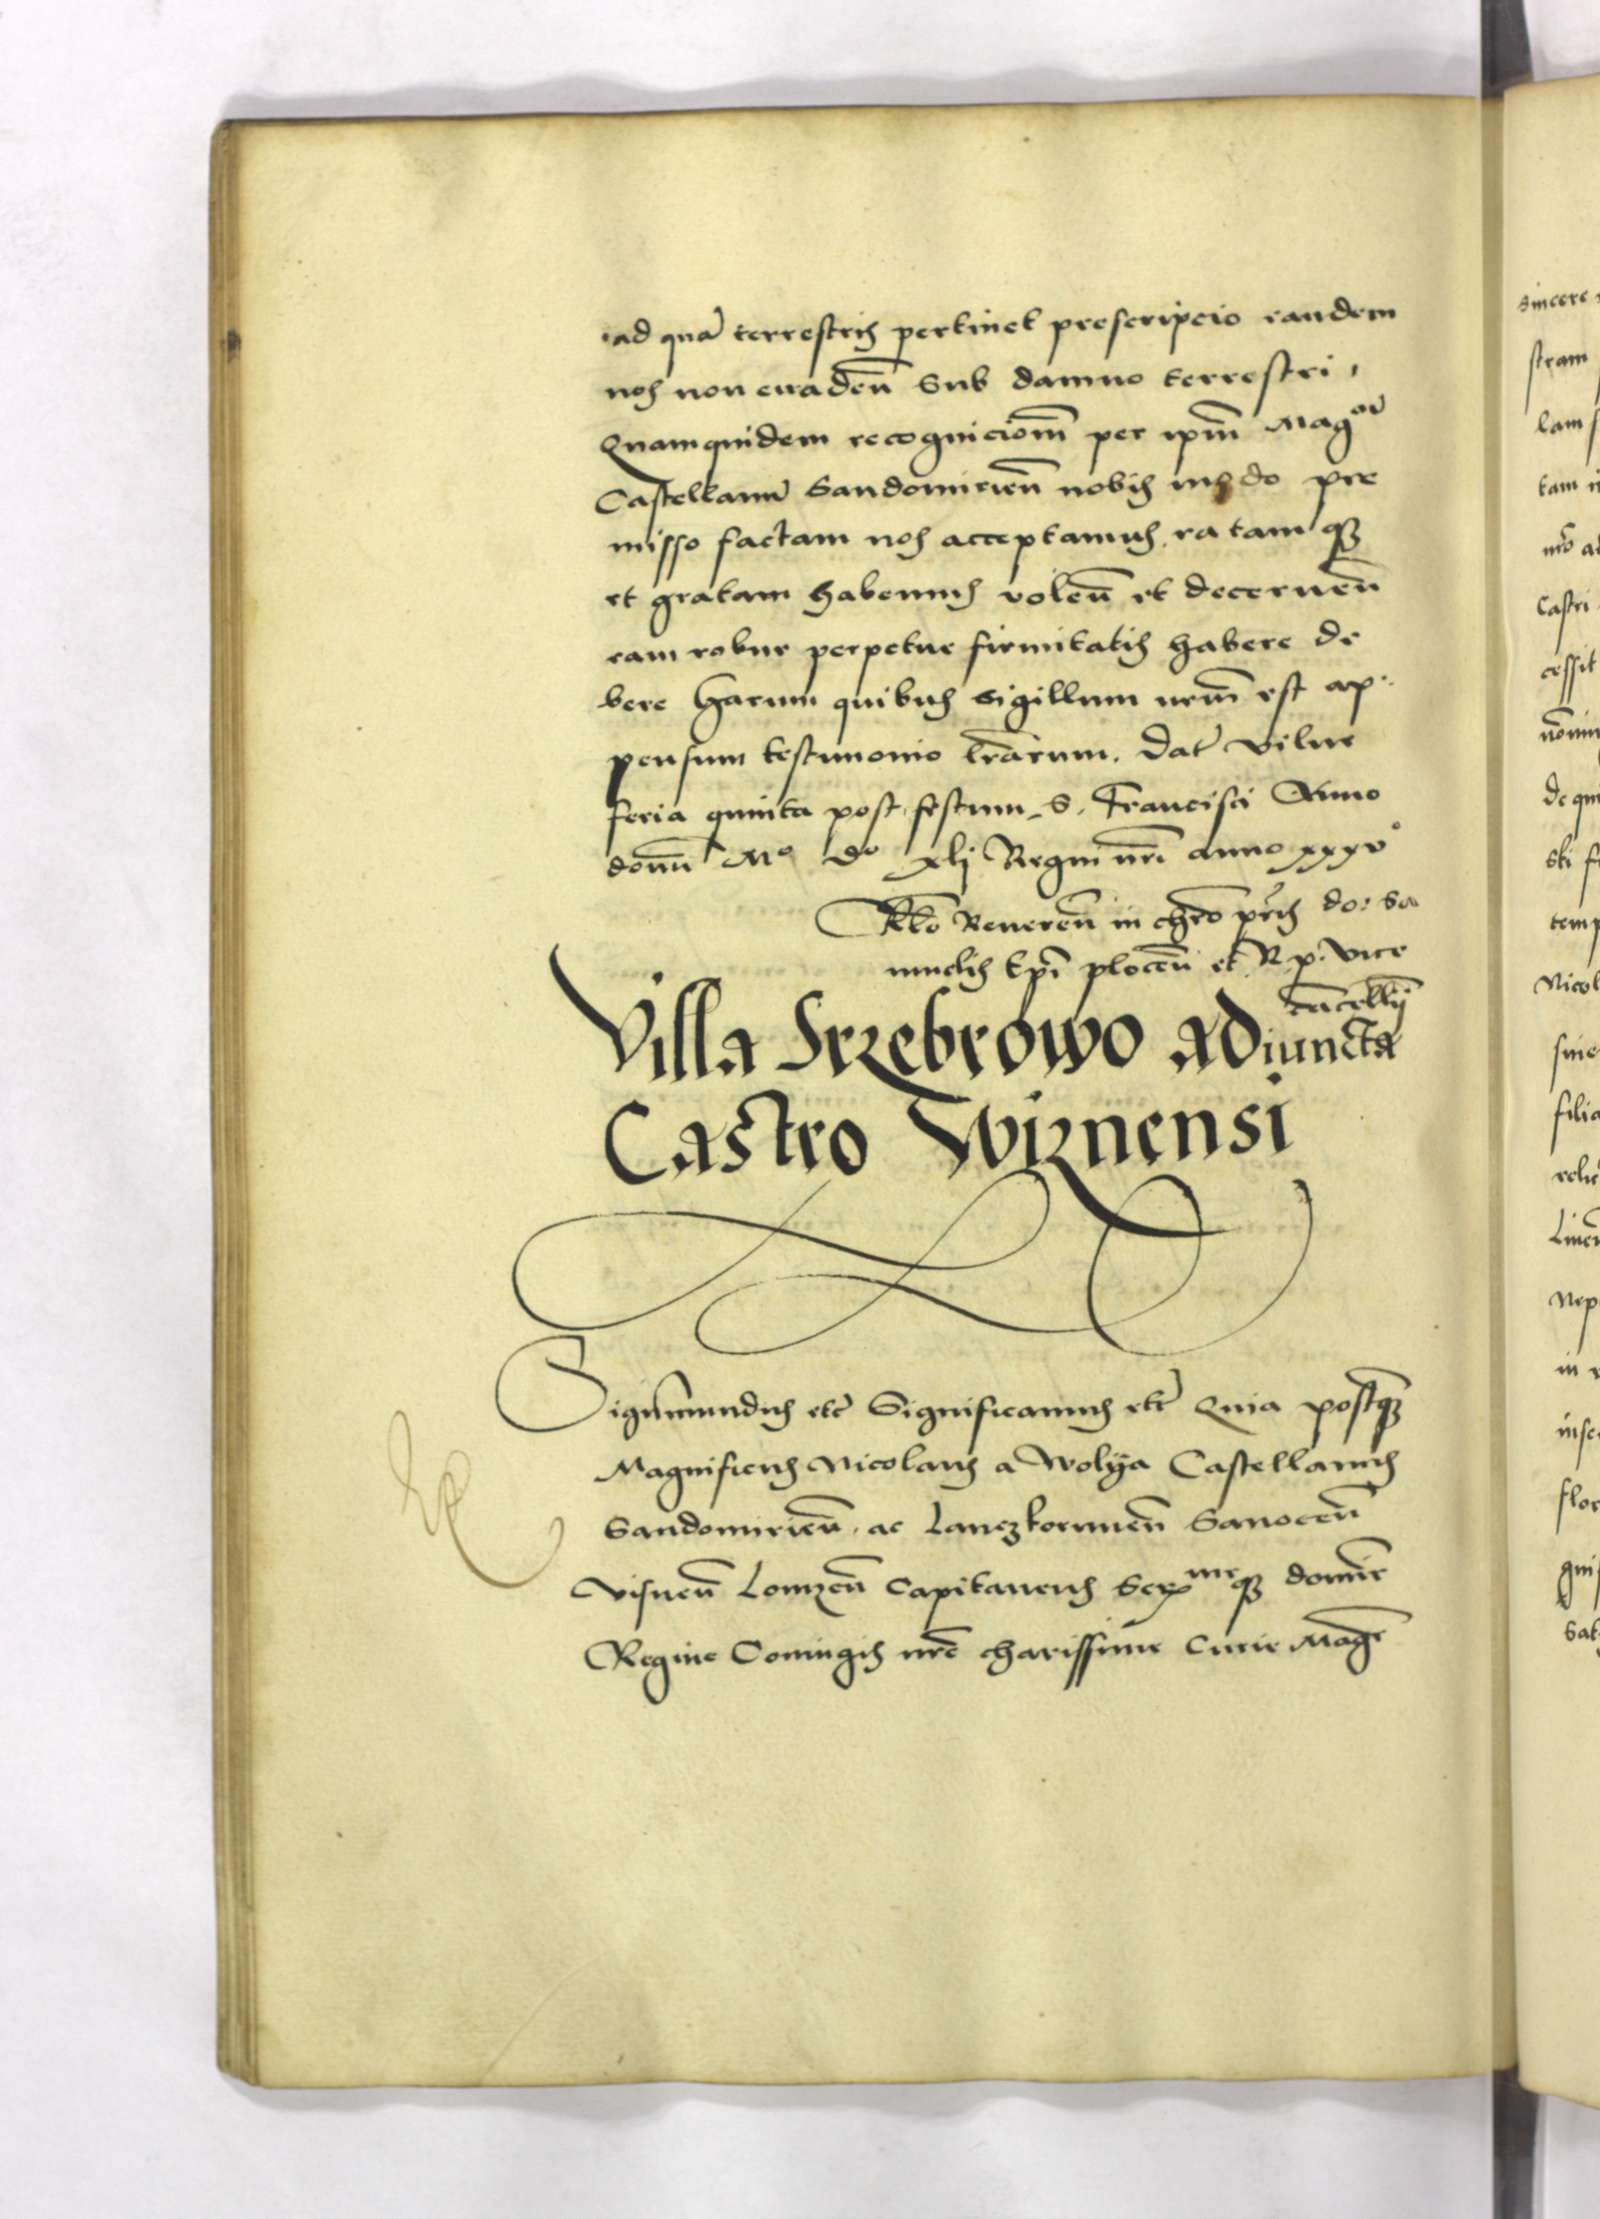 ad quā terrestris pertinet prescripcio eandem
nos non euadeñ sub damno terrestri,
Quamquidem recognicioēm per ipm̄ Magcū
Castellanū Sandomirieñ nobis modo pre
misso factam nos acceptamus ratamq3
et gratam habemus voleñ et decerneñ
eam robur perpetue firmitatis habere de
bere Harum quibus sigillum nrm̄ est ap.
pensum testimonio lrārum. Dat̄ Vilne
feria quinta post festum S. Francisci Anno
domī Mº Dº xlj Regni nrī anno xxxvº
Rlō Revereñ in chrō pr̄is do: Sa
muelis Epī ploceñ et R. p. vice
cācellij
Villa Srzebrowo adiuncta
Castro Wiznensi
Sigismundus etc̄ Significamus etc̄ Quia postq̄3
Magnificus Nicolaus a Wolÿa Castellanus
Sandomirieñ. ac Lanczkoruneñ Sanoceñ
Visneñ Lomzeñ Capitaneus Sermeq3 domīe
Regine Coniugis nrē charissime Curie Magr̄
sincere
stram
lam
tam
nrō
Castri
cessit
nōmin
de
ski
temp
Nicol
sme
filia
relic
Linen
Nep
in
inse
flor
gni
Sat